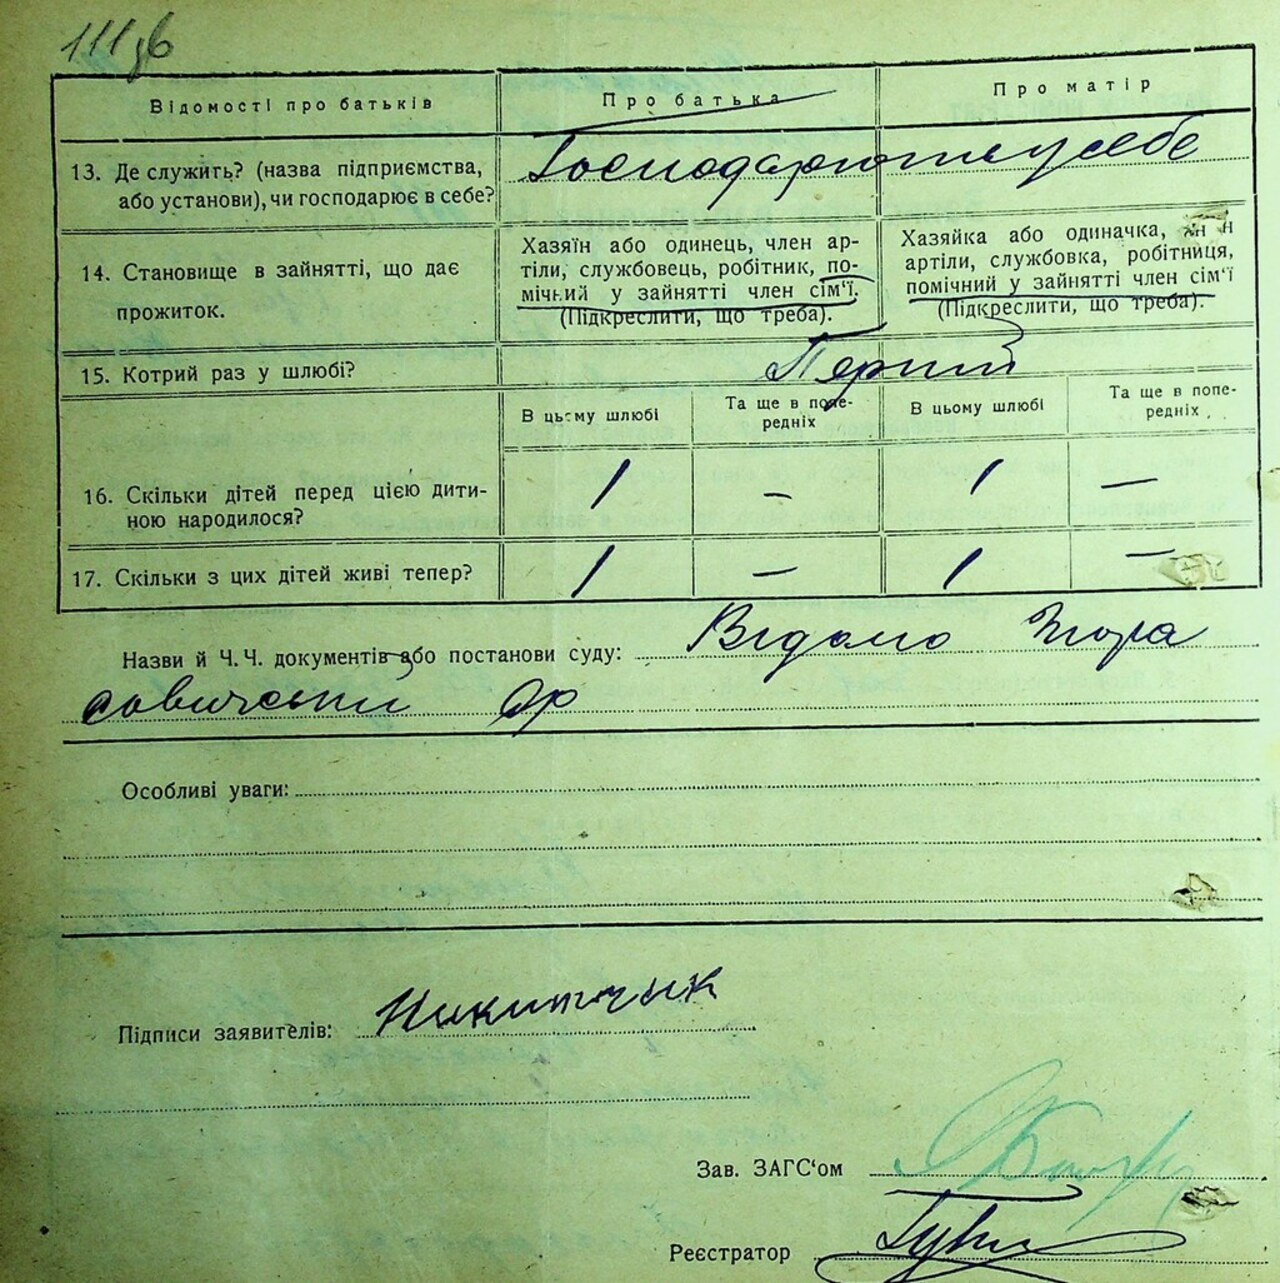 111 зв
Відомості про батьків
Про батька
Про матір
13. Де служить? (назва підприємства,
або установи), чи господарює в себе?
Господарюють у себе
14. Становище в зайнятті, що дає
прожиток.
Хазяїн або одинець, член ар-
тіли, службовець, робітник, по-
мічний у зайнятті член сім'ї.
(Підкреслити, що треба).
Хазяйка або одиначка,
артіли, службовка, робітниця,
помічний у зайнятті член сім'ї
(Підкреслити, що треба).
15. Котрий раз у шлюбі?
В цьому шлюбі
Та ще в попе-
редніх
В цьому шлюбі
Та ще в попе-
редніх
16. Скільки дітей перед цією дити-
ною народилося?
1 — 1 —
17. Скільки з цих дітей живі тепер?
1 — 1 —
Назви й Ч.Ч. документів або постанови суду: Відомо
Особливі уваги:
Підписи заявителів: Никитчык
Зав. ЗАГС'ом
Реєстратор